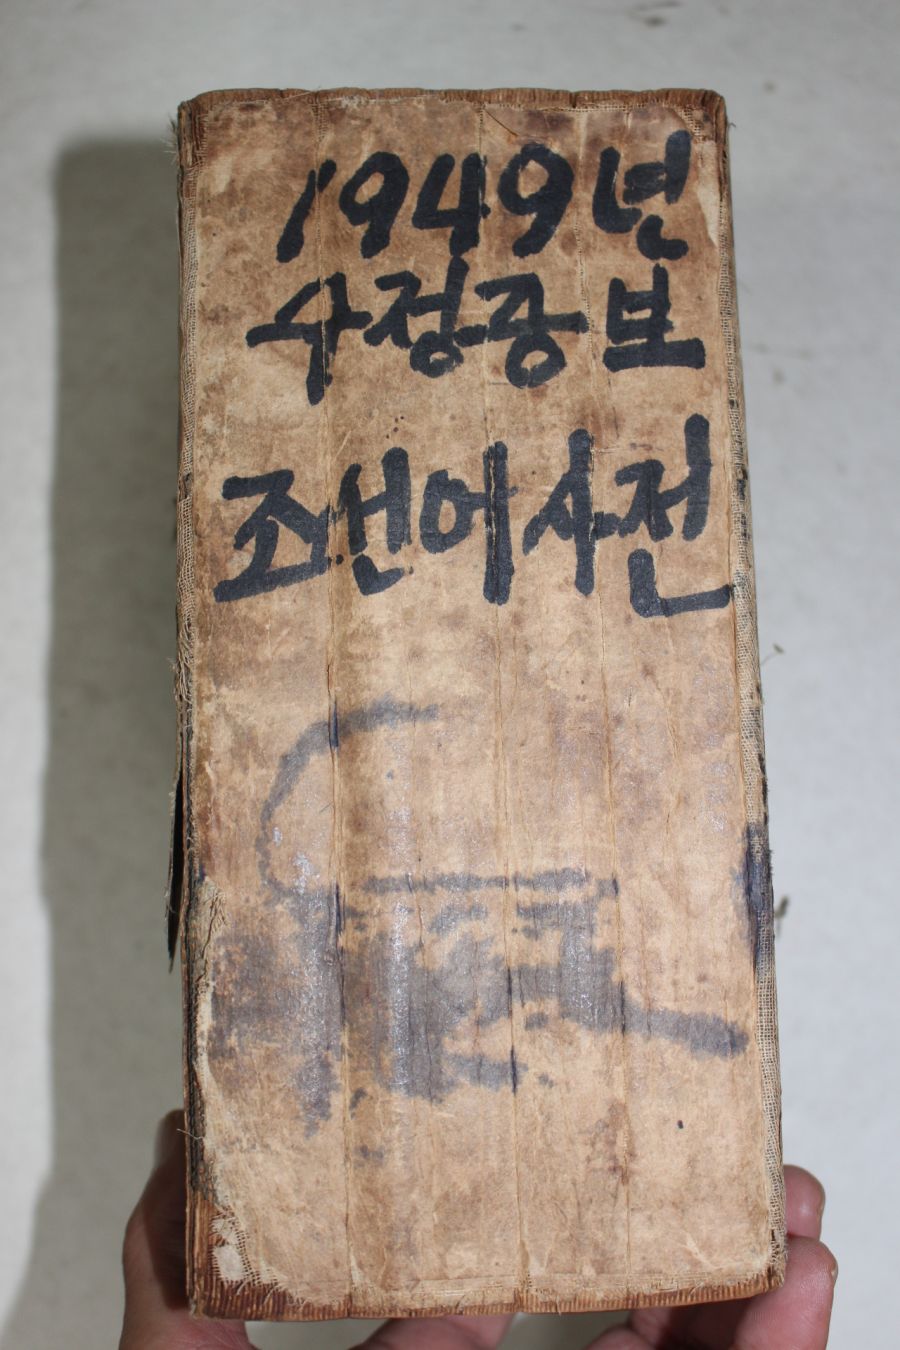 1949년
수정증보
조선어사전